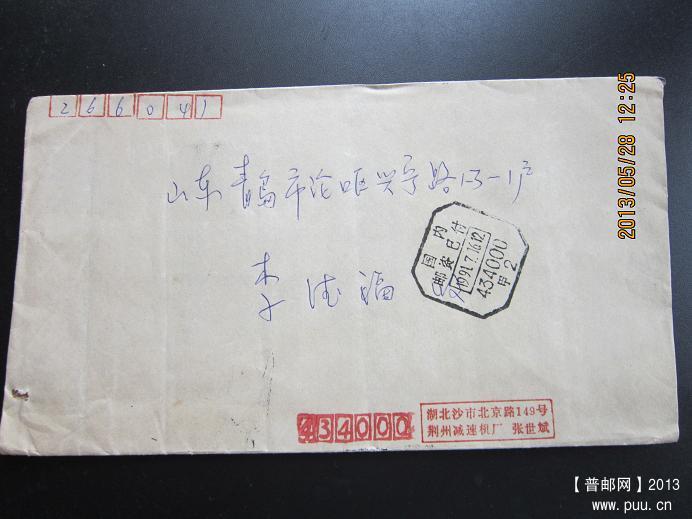 266041
山东青岛市沧口区兴宁路13-1户
李德福
国内
邮资已付
1991.7.16.12
434000
甲2
434000
湖北沙市北京路149号
荆州减速机厂 张世斌
2013/05/28 12:25
【普邮网】2013
www.puu.cn